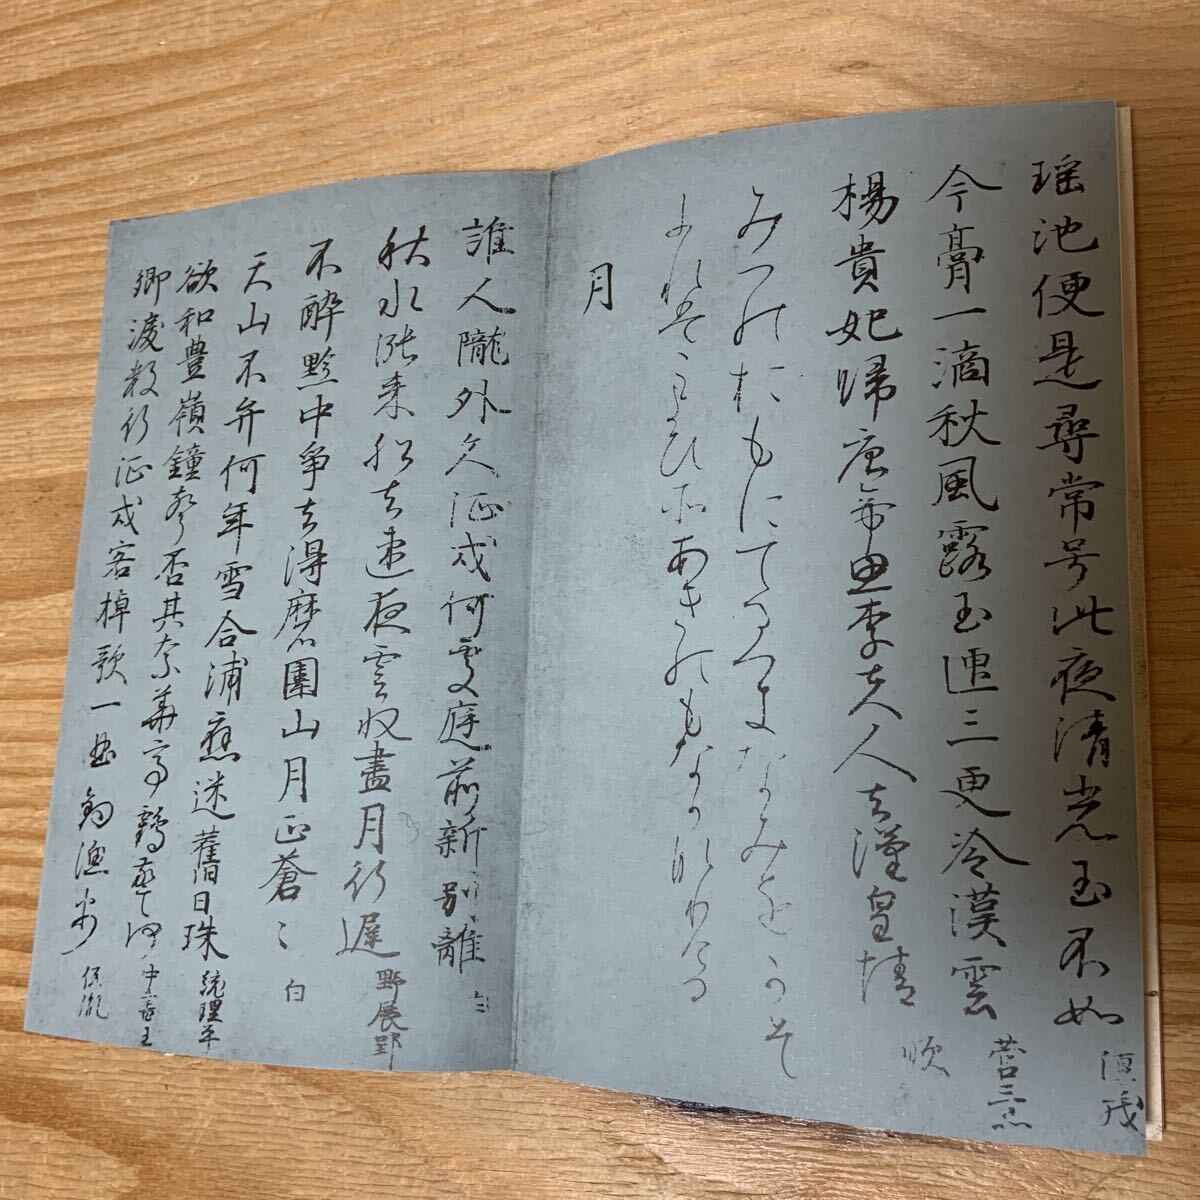 瑶池便是尋常号此夜清光玉不如 淳茂
今膏一滴秋風露玉匣三更冷漢雲 菅三品
楊貴妃帰唐帝思李夫人去漢皇情 順
みつのおもにてるつきなみをかそ
ふれはこよひそあきのもなかなりける
月
誰人隴外久征戍何處庭前新別離 白
秋水漲来船去速夜雲収盡月行遅 野展郢
不酔黔中争去得磨團山月正蒼〻 白
天山不弁何年雪合浦應迷舊日珠 統理平
欲和豊嶺鐘聲否其奈華亭鶴警何 中書王
郷涙数行征戍客棹歌一曲釣漁翁 保胤